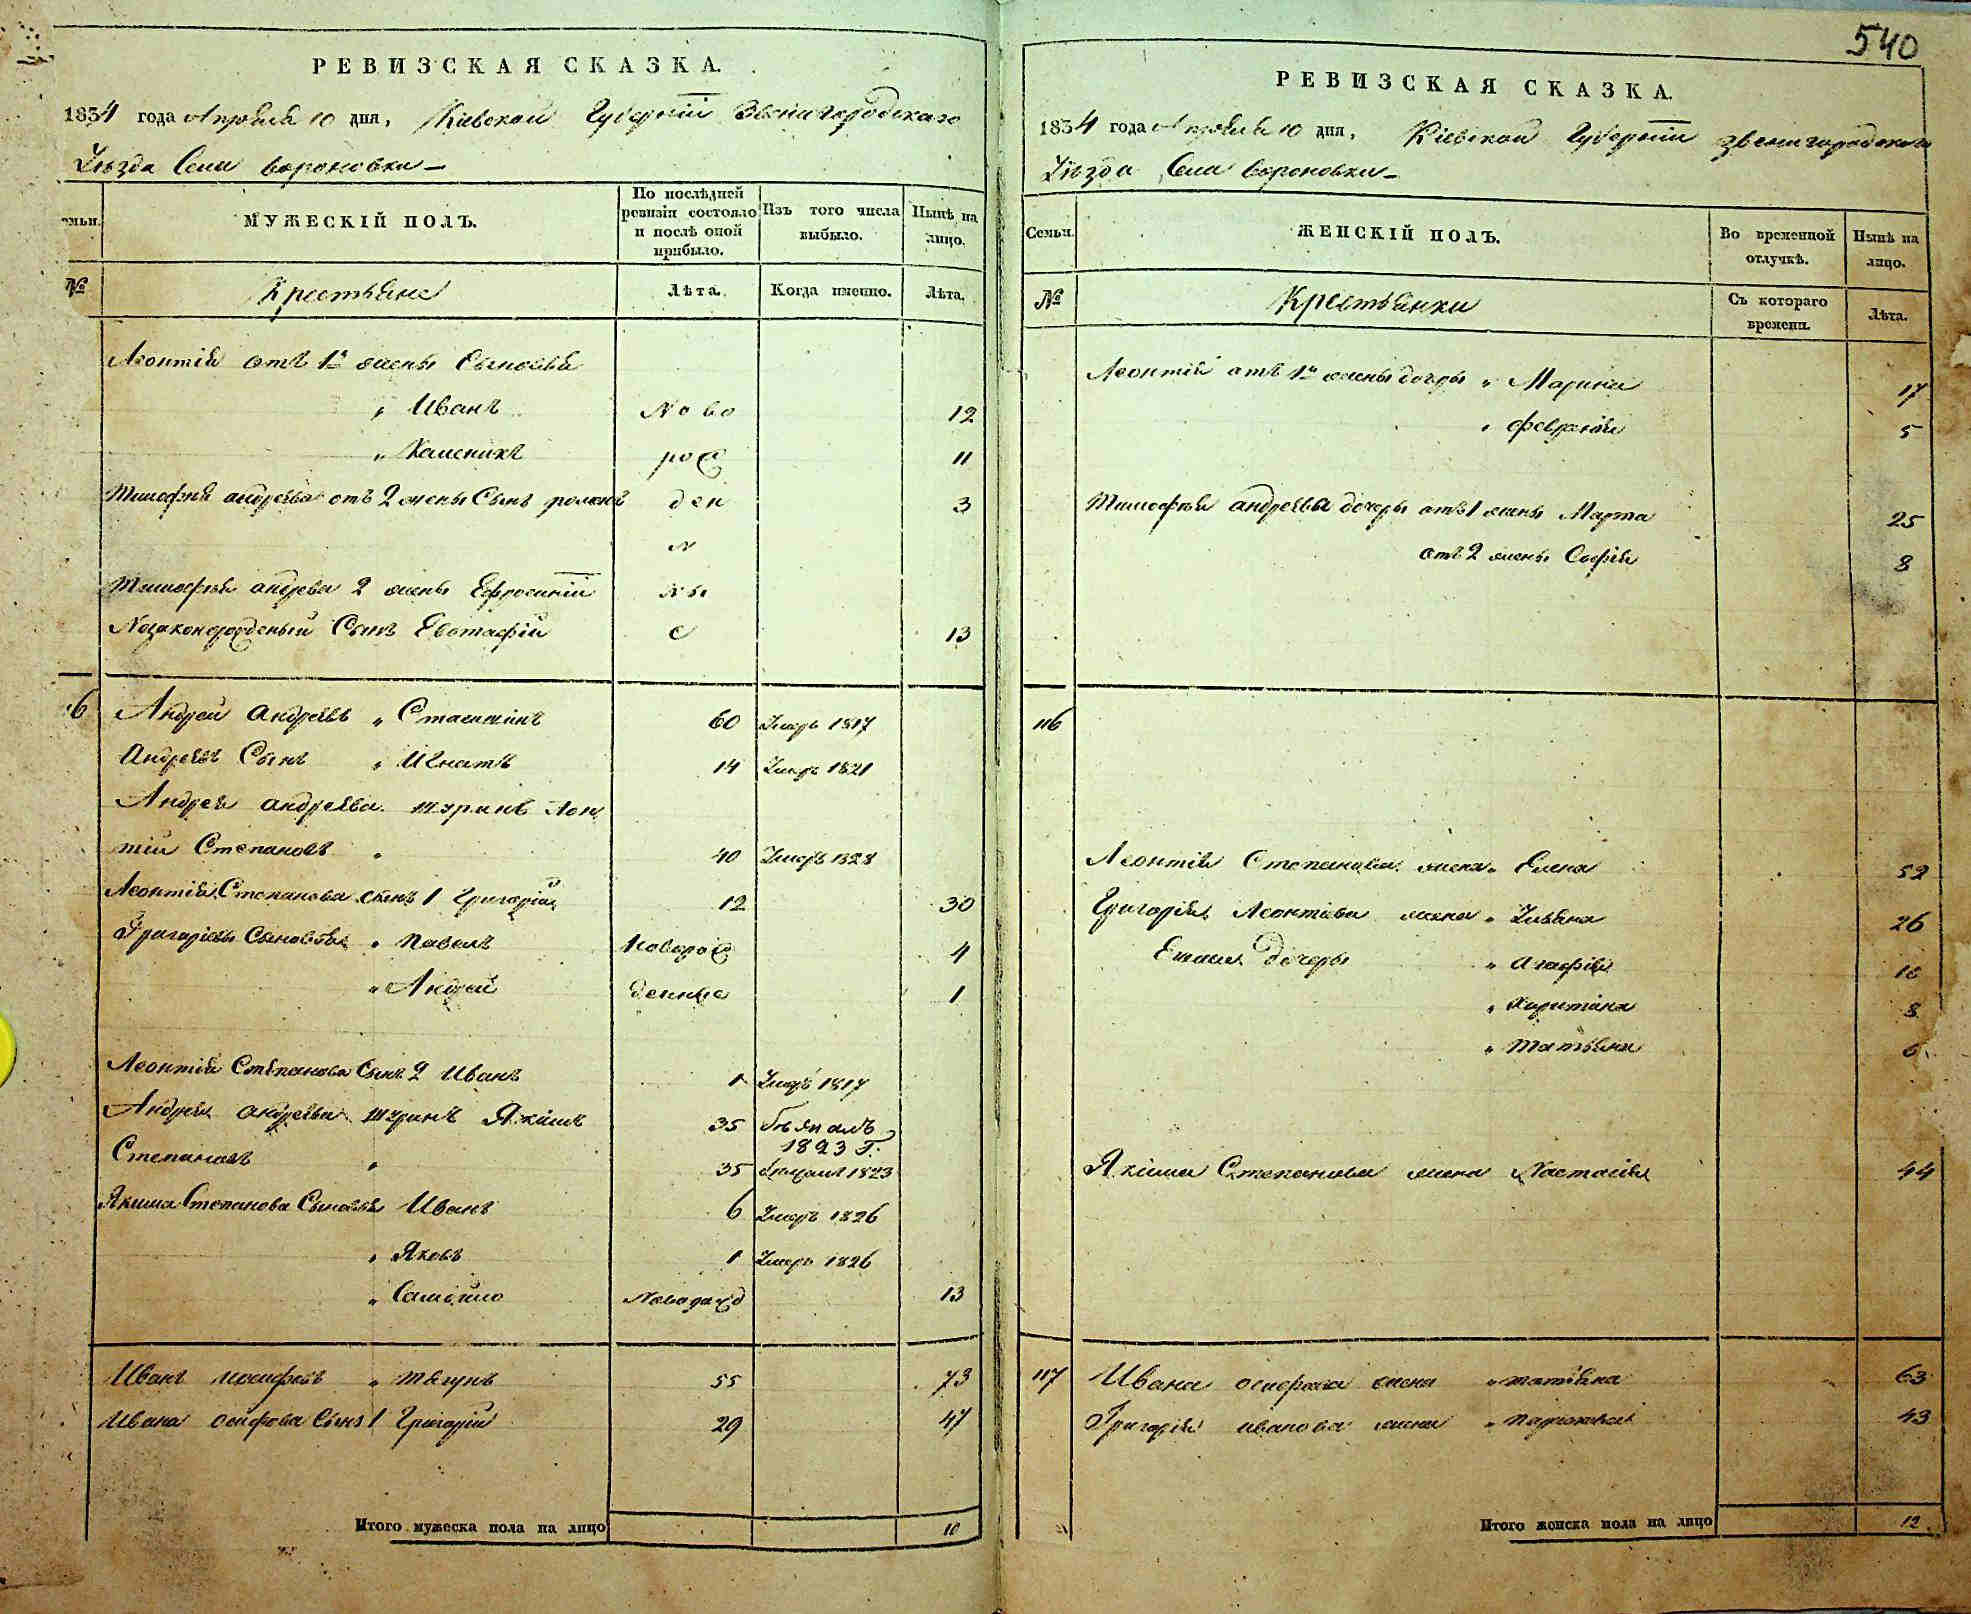 540
РЕВИЗСКАЯ СКАЗКА.
1834 года Апреля 10 дня, Киевской Губернiи Звенигородскаго
Уезда Села вороновки
МУЖЕСКІЙ ПОЛЪ.
По послѣдней ревизіи состояло и послѣ оной прибыло.
Изъ того числа выбыло.
Нынѣ на лицо.
№
Крестьяне
Лѣта.
Когда именно.
Лѣта.
Леонтiя отъ 1й жены Сыновья
Иванъ Ново 12
рож 11
Тимофея андреева отъ 2 жены Сынъ романъ ден 3
Тимофея андрева 2 жены Ефросинiи ны
Незаконорожденый Сынъ Евстафiй е 13
Андрей андреевъ 60 Умеръ 1817
Андреевъ Сынъ Игнатъ 14 Умеръ 1821
Андрея андреева шуринъ Леон
тiй Степановъ 40 Умеръ 1828
Леонтiя Степанова сынъ 1 Григорiй 12 30
Григорiевы Сыновья Павелъ Новорож 4
Андрей денные 1
Леонтiя Степанова Сынъ 2 Иванъ 1 Умеръ 1817
Андрея андреева шуринъ Якимъ 35
1823 Г.
Степановъ 35 1823
Якима Степанова Сыновья Иванъ 6 Умеръ 1826
Яковъ 1 Умеръ 1826
Самойло Новорожд 13
Иванъ 55 73
Ивана осифова Сынъ 1 Григорiй 29 47
Итого мужеска пола на лицо 10
РЕВИЗСКАЯ СКАЗКА.
1834 года Апреля 10 дня, Кiевской Губернiи звенигородскаго
Уезда Села вороновки
Семьи.
ЖЕНСКІЙ ПОЛЪ.
Во временной отлучкѣ.
Нынѣ на лицо.
№
Крестьянки
Съ котораго времени.
Лѣта.
Леонтiя отъ 1й жены дочеры Марина 17
5
Тимофея андреева дочеры отъ 1 жены Марта 25
отъ 2 жены Софiя 8
116
Леонтiя Степанова жена Елена 52
Григорiя Леонтiева жена Ульяна 26
дочеры Агафiя 10
Харитина 8
Татьяна 6
Якима Степанова жена Настасiя 44
117 Ивана осифова жена татiяна 63
Григорiя иванова жена 43
Итого женска пола на лицо 12